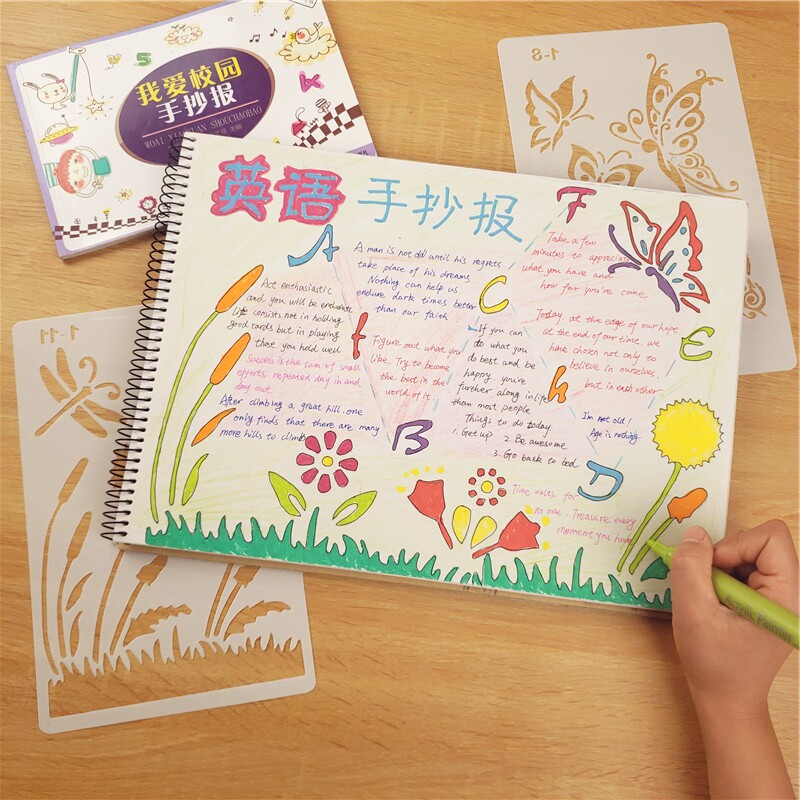 我爱校园
手抄报
WOAI XIAOYUAN SHOUCHAOBAO
1-8
1-11
英语 手抄报
A
A man is not old until his regrets
take place of his dreams
Nothing can help us
endure dark times better
than our faith
Act enthusiastic
and you will be enthusiastic
Life consists not in holding
good cards but in playing
those you hold well
Success is the sum of small
efforts repeated day in and
day out
After climbing a great hill. one
only finds that there are many
more hills to climb
t
Figure out what you
like. Try to become
the best in the
world of it
B
C
If you can
do what you
do best and be
happy. you're
further along in life
than most people
Things to do today
1. Get up 2. Be awesome
3. Go back to bed
F
Take a few
minutes to appreciate
what you have and
how far you've come
Today, at the edge of our hope,
at the end of our time, we
have chosen not only to
believe in ourselves,
but in each other
E
h
I'm not old!
Age is nothing
D
Time waits for
no one. Treasure every
moment you have